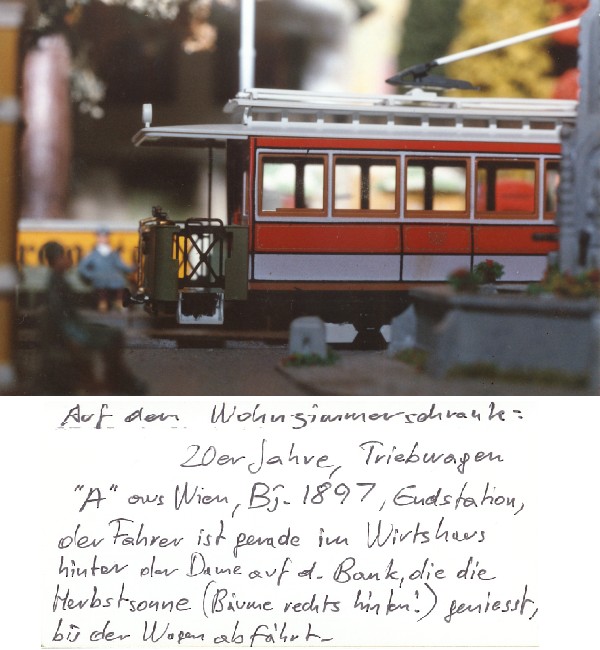 Auf dem Wohnzimmerschrank:
20er Jahre, Triebwagen
"A" aus Wien, Bj. 1897, Endstation,
der Fahrer ist gerade im Wirtshaus
hinter der Dame auf d. Bank, die die
Herbstsonne (Bäume rechts hinten!) geniesst,
bis der Wagen abfährt.